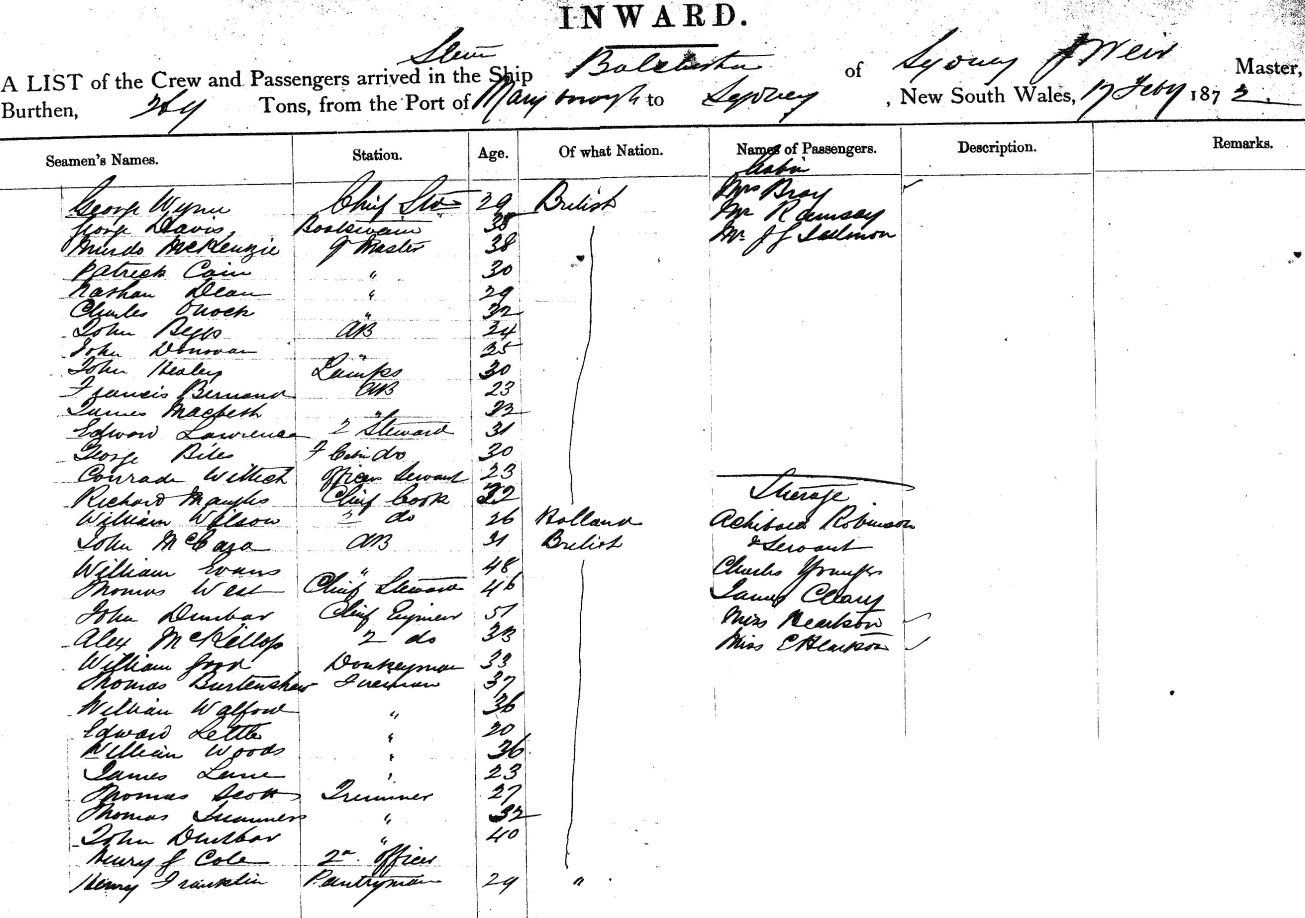 INWARD.
A LIST of the Crew and Passengers arrived in the Ship of Sydney J Weir Master,
Burthen, Tons, from the Port of Maryborough to Sydney, New South Wales, 17 Feby 1872.
Seamen's Names. Station. Age. Of what Nation. Names of Passengers. Description. Remarks.
Cabin
George Wynn Chief 29 British Mrs Bray
George Davis Boatswain 38 Mr Ramsay
Murdo McKenzie Q Master 38 Mr J J Salmon
Patrick Cain " 30
Nathan Dean " 29
Charles " 32
John Begg AB 24
John Donovan " 25
John Healey Lamps 30
Francis Bernard AB 23
James Macbeth "
Edward Lawrence 2 Steward 31
George F Cabin do 30
Conrade Officers Servant 23
Richard Chief Cook Steerage
William Wilson 2 do 26 Holland Achibald Robinson
John AB 31 British & Servant
William Evans " 48 Charles Younger
Thomas West Chief Steward 46 James Cleary
John Dunbar Chief Engineer 51 Miss
Alex McKellop 2 do 33 Miss
William Good Donkeyman 33
Thomas Burtenshaw Fireman 37
William Walford " 36
Edward Little " 20
William Woods " 36
James Lane " 23
Thomas Scott Trimmer 27
Thomas Summers " 32
John Dunbar " 40
Henry J Cole 2nd Officer
Henry Franklin Pantryman 29 "